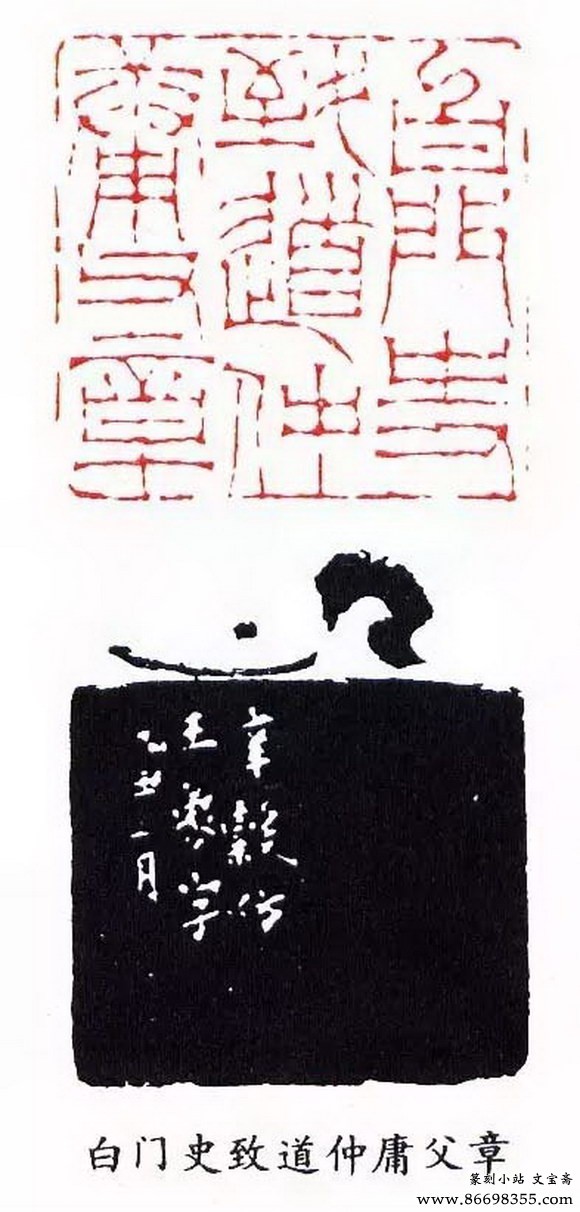 白門史
致道仲
庸父章
辛穀仿
王字
乙丑一月
白门史致道仲庸父章
篆刻小站 文宝斋
www.86698355.com